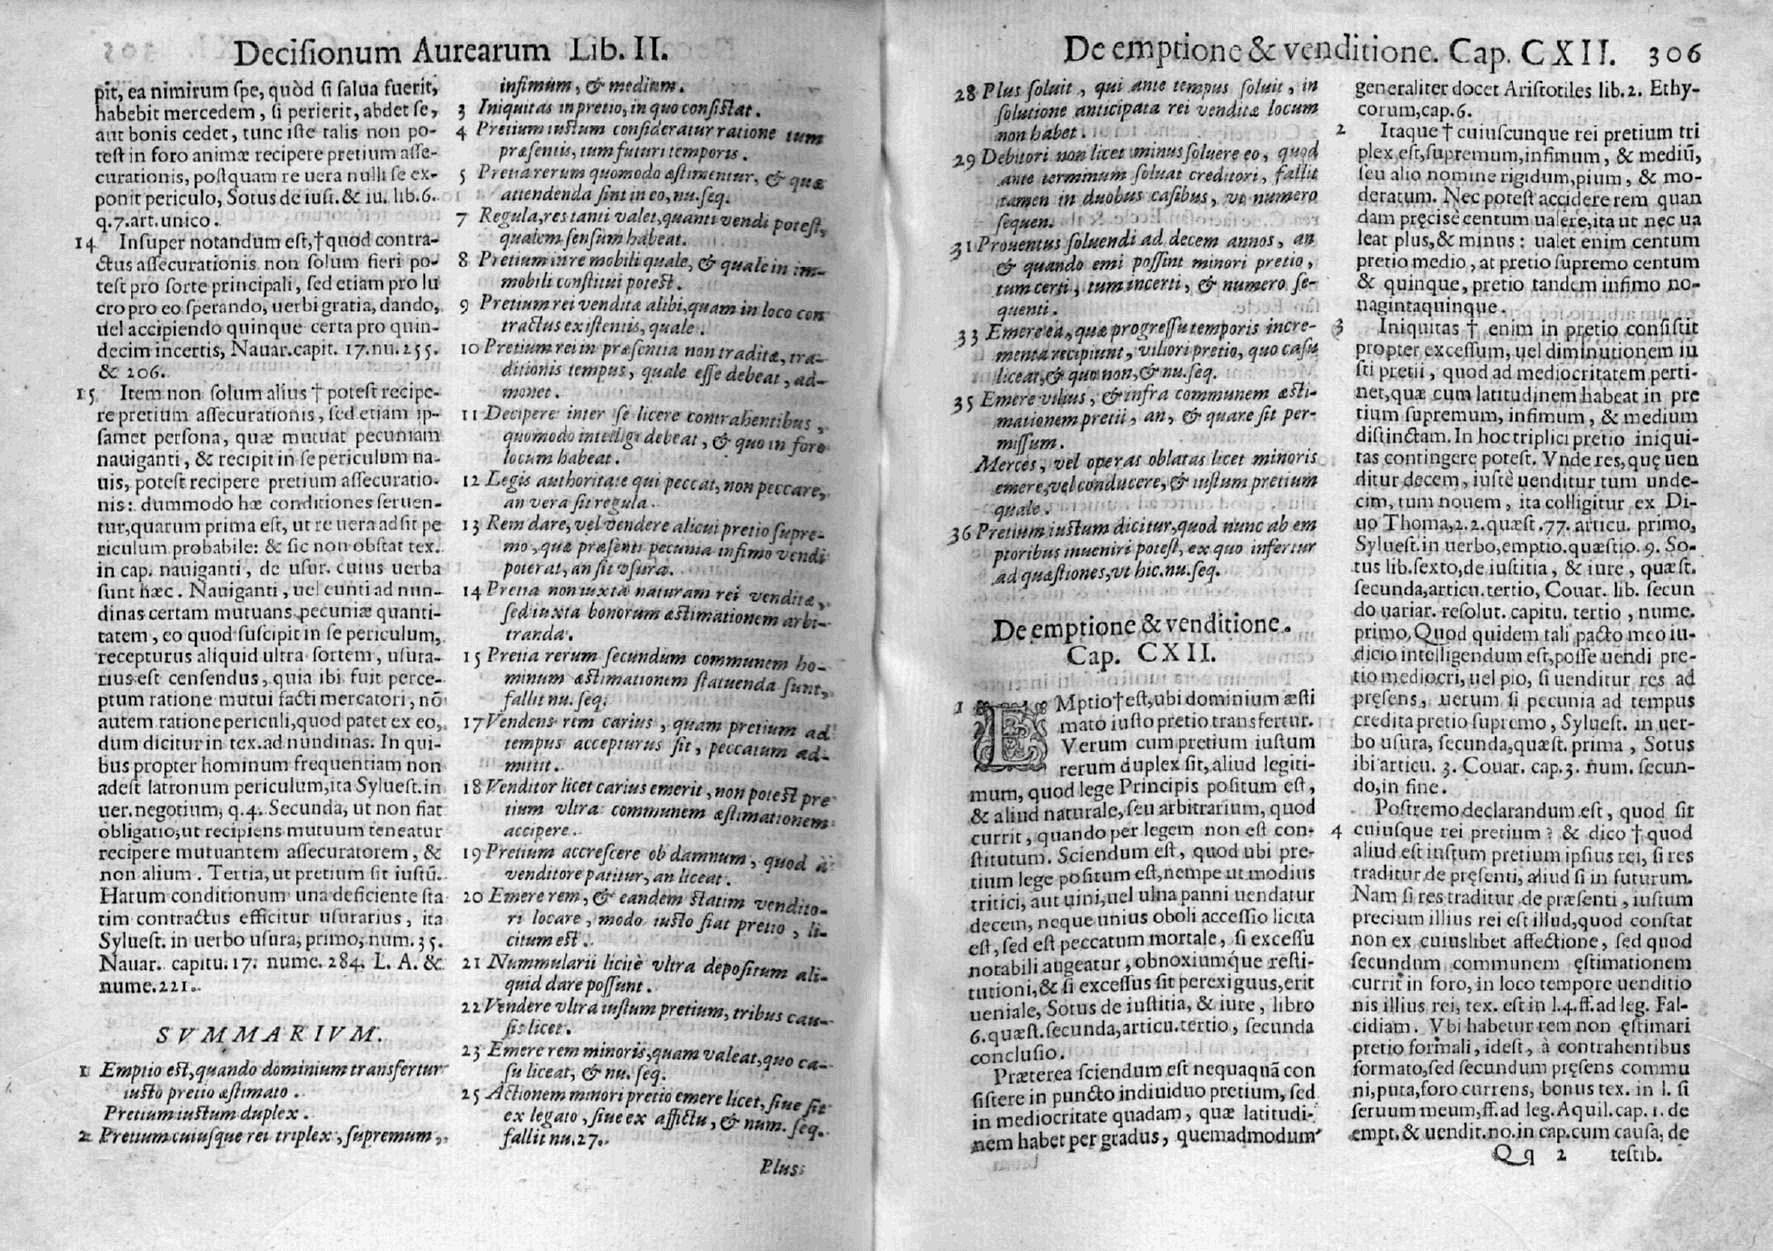 Decisionum Aurearum Lib. II.
pit, ea nimirum spe, quòd si salua fuerit,
habebit mercedem, si perierit, abdet se,
aut bonis cedet, tunc iste talis non po-
test in foro animæ recipere pretium asse-
curationis, postquam re uera nulli se ex-
ponit periculo, Sotus de iusi. & iu. lib. 6.
q. 7. art. unico.
14 Insuper notandum est, † quod contra-
ctus assecurationis non solum fieri po-
test pro sorte principali, sed etiam pro lu
cro pro eo sperando, uerbi gratia, dando,
uel accipiendo quinque certa pro quin-
decim incertis, Nauar. capit. 17. nu. 255.
& 206.
15 Item non solum alius † potest recipe-
re pretium assecurationis, sed etiam ip-
samet persona, quæ mutuat pecuniam
nauiganti, & recipit in se periculum na-
uis, potest recipere pretium assecuratio-
nis: dummodo hæ conditiones seruen-
tur, quarum prima est, ut re uera adsit pe
riculum probabile: & sic non obstat tex.
in cap. nauiganti, de usur. cuius uerba
sunt hæc. Nauiganti, uel eunti ad nun-
dinas certam mutuans pecuniæ quanti-
tatem, eo quod suscipit in se periculum,
recepturus aliquid ultra sortem, usura-
rius est censendus, quia ibi fuit perce-
ptum ratione mutui facti mercatori, nō
autem ratione periculi, quod patet ex eo,
dum dicitur in tex. ad nundinas. In qui-
bus propter hominum frequentiam non
adest latronum periculum, ita Syluest. in
uer. negotium, q. 4. Secunda, ut non fiat
obligatio, ut recipiens mutuum teneatur
recipere mutuantem assecuratorem, &
non alium. Tertia, ut pretium sit iustū.
Harum conditionum una deficiente sta
tim contractus efficitur usurarius, ita
Syluest. in uerbo usura, primo, num. 35.
Nauar. capitu. 17. nume. 284. L. A. &
nume. 221.
SVMMARIVM.
1 Emptio est, quando dominium transfertur
iusto pretio æstimato.
Pretium iustum duplex.
2 Pretium cuiusque rei triplex, supremum,
infimum, & medium.
3 Iniquitas in pretio, in quo consistat.
4 Pretium iustum consideratur ratione tum
præsentis, tum futuri temporis.
5 Pretia rerum quomodo æstimentur, & quæ
attendenda sint in eo, nu. seq.
7 Regula, res tanti valet, quanti vendi potest,
qualem sensum habeat.
8 Pretium in re mobili quale, & quale in im-
mobili constitui potest.
9 Pretium rei venditæ alibi, quam in loco con
tractus existentis, quale.
10 Pretium rei in præsentia non traditæ, tra-
ditionis tempus, quale esse debeat, ad-
monet.
11 Decipere inter se licere contrahentibus,
quomodo intelligi debeat, & quo in foro
locum habeat.
12 Legis authoritate qui peccat, non peccare,
an vera sit regula.
13 Rem dare, vel vendere alicui pretio supre-
mo, quæ præsenti pecunia infimo vendi
poterat, an sit vsura.
14 Pretia non iuxta naturam rei venditæ,
sed iuxta bonorum æstimationem arbi-
tranda.
15 Pretia rerum secundum communem ho-
minum æstimationem statuenda sunt,
fallit nu. seq.
17 Vendens rem carius, quam pretium ad
tempus accepturus sit, peccatum ad-
mittit.
18 Venditor licet carius emerit, non potest pre
tium vltra communem æstimationem
accipere.
19 Pretium accrescere ob damnum, quod à
venditore patitur, an liceat.
20 Emere rem, & eandem statim vendito-
ri locare, modo iusto fiat pretio, li-
citum est.
21 Nummularii licitè vltra depositum ali-
quid dare possunt.
22 Vendere vltra iustum pretium, tribus cau-
sis licet.
23 Emere rem minoris, quam valeat, quo ca-
su liceat, & nu. seq.
25 Actionem minori pretio emere licet, siue sit
ex legato, siue ex affictu, & num. seq.
fallit nu. 27.
Plus
De emptione & venditione. Cap. CXII. 306
28 Plus soluit, qui ante tempus soluit, in
solutione anticipata rei venditæ locum
non habet.
29 Debitori non licet minus soluere eo, quod
ante terminum soluat creditori, fallit
tamen in duobus casibus, vt numero
sequen.
31 Prouentus soluendi ad decem annos, an
& quando emi possint minori pretio,
tum certi, tum incerti, & numero se-
quenti.
33 Emere ea, quæ progressu temporis incre-
menta recipiunt, viliori pretio, quo casu
liceat, & quo non, & nu. seq.
35 Emere vilius, & infra communem æsti-
mationem pretii, an, & quare sit per-
missum.
Merces, vel operas oblatas licet minoris
emere, vel conducere, & iustum pretium
quale.
36 Pretium iustum dicitur, quod nunc ab em
ptoribus inueniri potest, ex quo infertur
ad quæstiones, vt hic. nu. seq.
De emptione & venditione.
Cap. CXII.
1 EMptio † est, ubi dominium æsti
mato iusto pretio transfertur.
Verum cum pretium iustum
rerum duplex sit, aliud legiti-
mum, quod lege Principis positum est,
& aliud naturale, seu arbitrarium, quod
currit, quando per legem non est con-
stitutum. Sciendum est, quod ubi pre-
tium lege positum est, nempe ut modius
tritici, aut uini, uel ulna panni uendatur
decem, neque unius oboli accessio licita
est, sed est peccatum mortale, si excessu
notabili augeatur, obnoxiumque resti-
tutioni, & si excessus sit perexiguus, erit
ueniale, Sotus de iustitia, & iure, libro
6. quæst. secunda, articu. tertio, secunda
conclusio.
Præterea sciendum est nequaquā con
sistere in puncto indiuiduo pretium, sed
in mediocritate quadam, quæ latitudi-
nem habet per gradus, quemadmodum
generaliter docet Aristotiles lib. 2. Ethy-
corum, cap. 6.
2 Itaque † cuiuscunque rei pretium tri
plex est, supremum, infimum, & mediū,
seu alio nomine rigidum, pium, & mo-
deratum. Nec potest accidere rem quan
dam pręcise centum ualere, ita ut nec ua
leat plus, & minus: ualet enim centum
pretio medio, at pretio supremo centum
& quinque, pretio tandem infimo no-
nagintaquinque.
3 Iniquitas † enim in pretio consistit
propter excessum, uel diminutionem iu
sti pretii, quod ad mediocritatem perti-
net, quæ cum latitudinem habeat in pre
tium supremum, infimum, & medium
distinctam. In hoc triplici pretio iniqui-
tas contingere potest. Vnde res, quę uen
ditur decem, iustè uenditur tum unde-
cim, tum nouem, ita colligitur ex Di-
uo Thoma, 2. 2. quæst. 77. articu. primo,
Syluest. in uerbo, emptio. quæstio. 9. So-
tus lib. sexto, de iustitia, & iure, quæst.
secunda, articu. tertio, Couar. lib. secun
do uariar. resolut. capitu. tertio, nume.
primo. Quod quidem tali pacto meo iu-
dicio intelligendum est, posse uendi pre-
tio mediocri, uel pio, si uenditur res ad
pręsens, uerum si pecunia ad tempus
credita pretio supremo, Syluest. in uer-
bo usura, secunda, quæst. prima, Sotus
ibi articu. 3. Couar. cap. 3. num. secun-
do, in fine.
Postremo declarandum est, quod sit
4 cuiusque rei pretium? & dico † quod
aliud est iustum pretium ipsius rei, si res
traditur de pręsenti, aliud si in futurum.
Nam si res traditur de præsenti, iustum
precium illius rei est illud, quod constat
non ex cuiuslibet affectione, sed quod
secundum communem ęstimationem
currit in foro, in loco tempore uenditio
nis illius rei, tex. est in l. 4. ff. ad leg. Fal-
cidiam. Vbi habetur rem non ęstimari
pretio formali, idest, à contrahentibus
formato, sed secundum pręsens commu
ni, puta, foro currens, bonus tex. in l. si
seruum meum, ff. ad leg. Aquil. cap. 1. de
empt. & uendit. no. in cap. cum causa, de
Qq 2 testib.